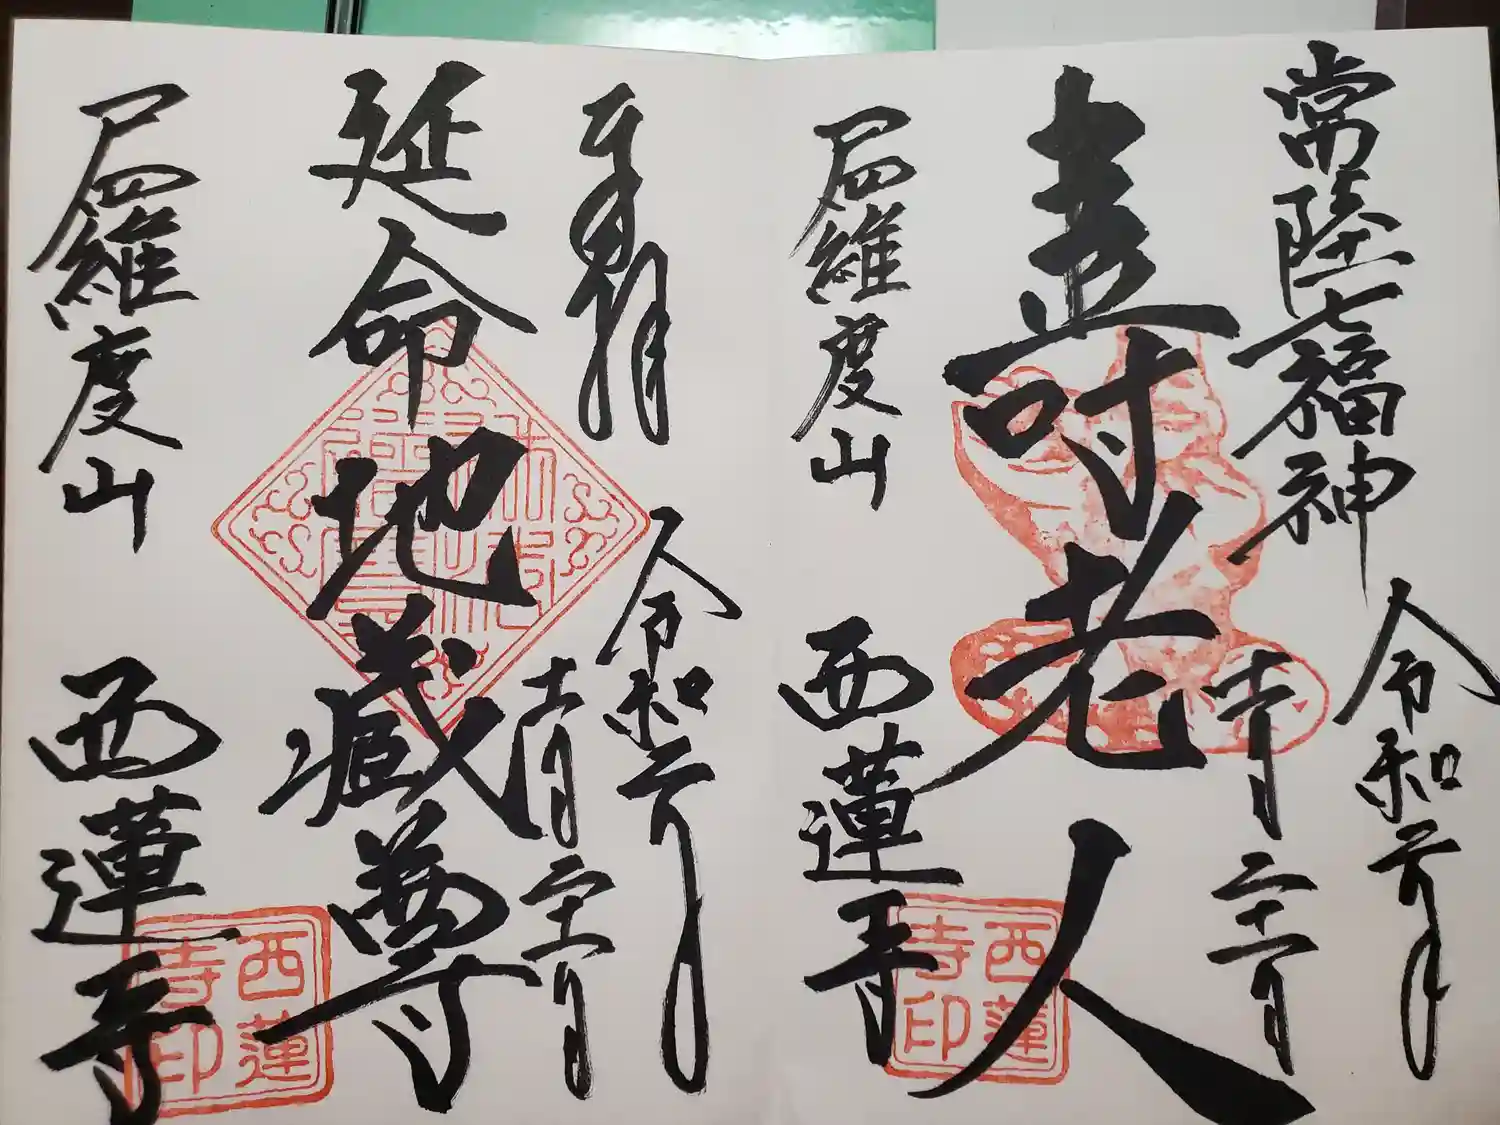 常陸七福神
令和元年
十一月二十一日
壽老人
尸羅度山
西蓮寺
西蓮寺印
奉拝
令和元年
十一月二十一日
延命地蔵尊
尸羅度山
西蓮寺
西蓮寺印